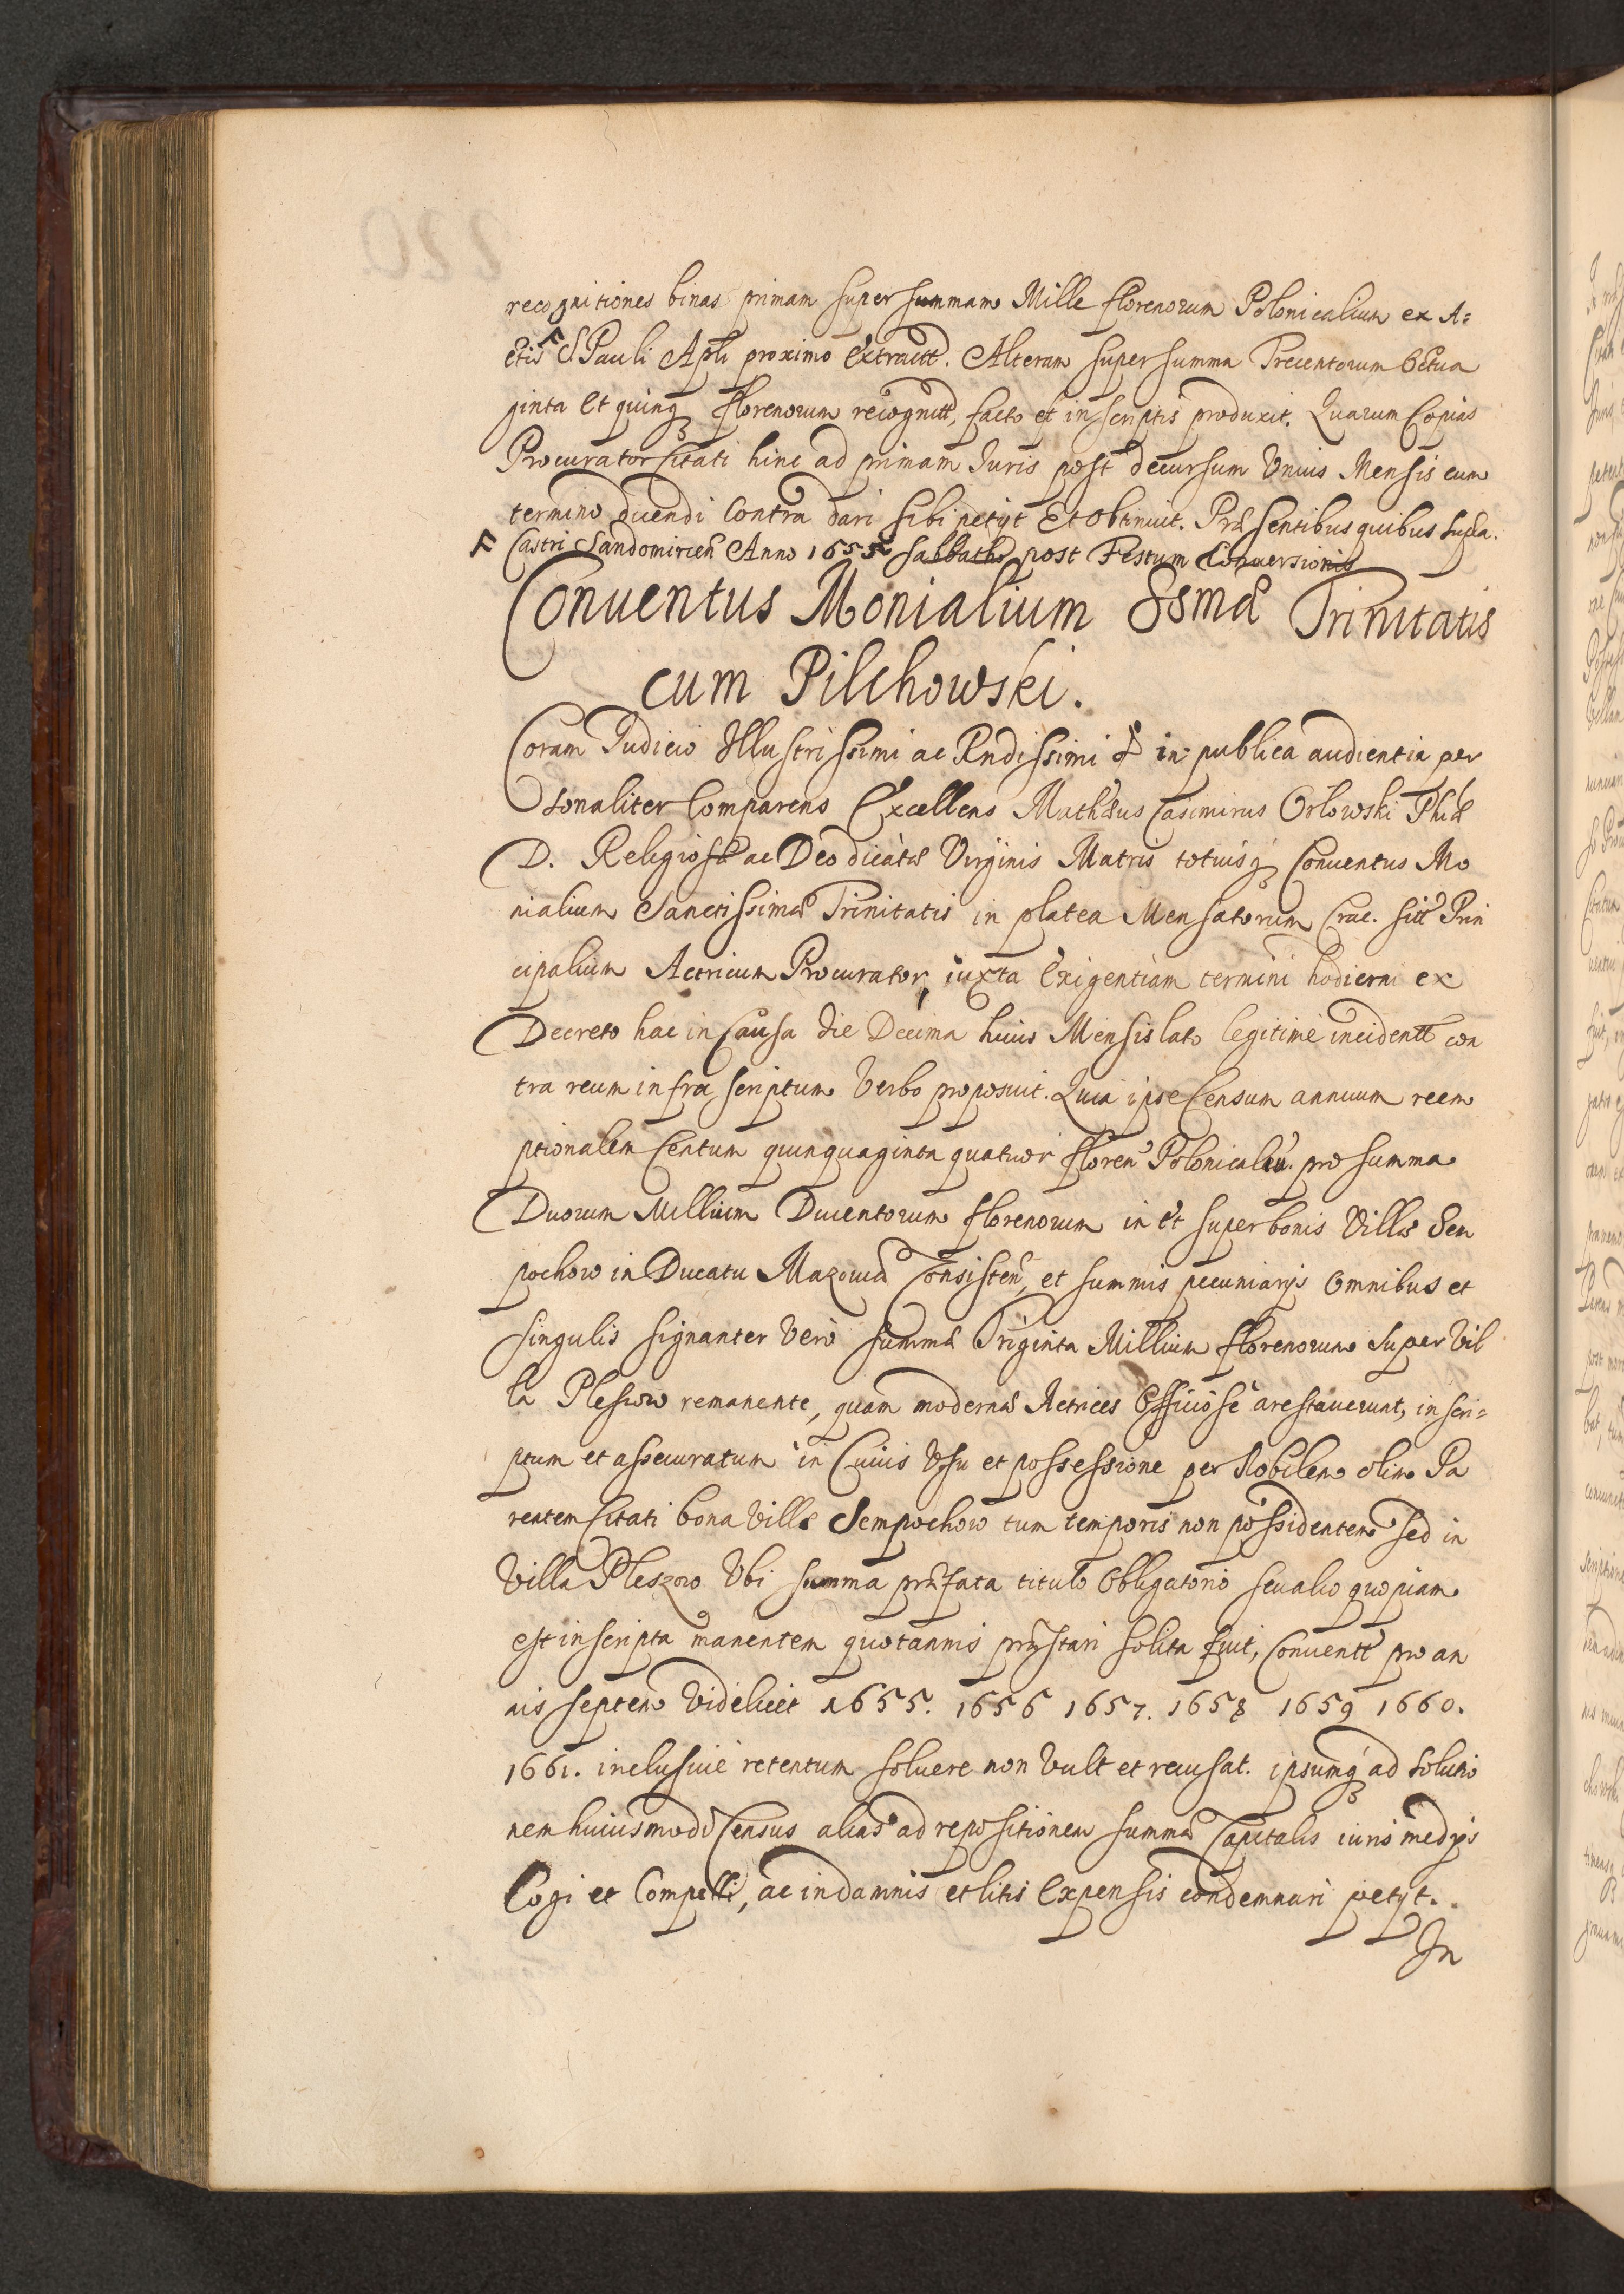 recognitiones binas primam super summam Mille florenorum Polonicalium ex A=
ctis F S Pauli Apli proximo extractt. Alteram super summa Trecentorum Octua
ginta Et quinq florenorum recognitt, facto et in scriptis produxit. Quarum Copias
Procurator Citati hinc ad primam Iuris post decursum Unius Mensis cum
termino dicendi Contra dari sibi petijt Et obtinuit. Præsentibus quibus supra.
F Castri Sandomirien Anno 1655 Sabbatho post Festum Conversionis
Conuentus Monialium SSmæ Trinitatis
cum Pilchowski.
Coram Iudicio Illustrissimi ac Rndissimi & in publica audientia per
sonaliter Comparens Excellens Mathæus Casimirus Orlowski Phiæ
D. Religiosæ ac Deo dicatæ Virginis Matris totiusq Conuentus Mo
nialium Sanctissimæ Trinitatis in platea Mensatorum Crac. sitt Prin
cipalium Actricum Procurator, iuxta Exigentiam termini hodierni ex
Decreto hac in Causa die Decima huius Mensis lato legitime incidentt con
tra reum infra scriptum Verbo proposuit. Quia ipse Censum annuum reem
ptionalem Centum quinquaginta quatuor floren Polonicaliu. pro summa
Duorum Millium Ducentorum florenorum in et super bonis Villæ Sem
pochow in Ducatu Mazouiæ Consisten, et summis pecuniarijs omnibus et
singulis signanter Vero summæ Triginta Millium florenorum super Vil
la Pleszow remanente, quam modernæ Actrices Officiose arestauerunt, in scri=
ptum et assecuratum in Cuius Usu et possessione per Nobilem olim Pa
rentem Citati bona Villæ Sempochow tum temporis non possidentem sed in
Villa Pleszow Ubi summa præfata titulo Obligatorio seu alio quopiam
est inscripta manentem quotannis præstari solita fuit, Conuentt pro an
nis septem Videlicet 1655. 1656 1657. 1658 1659 1660.
1661. inclusiue retentum soluere non Vult et recusat. ipsumq ad solutio
nem huiusmodi Census alias ad repositionem summæ Capitalis iuris medijs
Cogi et Compelli, ac in damnis et litis Expensis condemnari petijt.
In